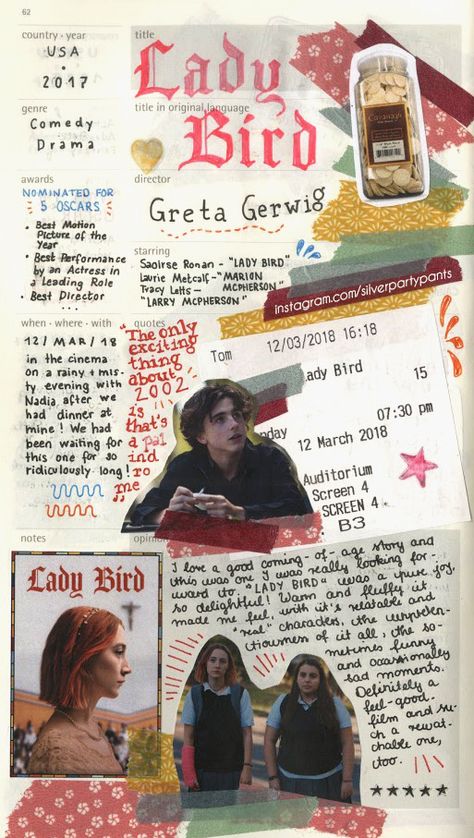 62
country · year
USA
•
2017
title
Lady
title in original language
Bird
genre
Comedy
Drama
awards
NOMINATED FOR
5 OSCARS
• Best Motion
Picture of the
Year
• Best Performance
by an Actress in
a Leading Role
• Best Director
...
director
Greta Gerwig
starring
Saoirse Ronan - "LADY BIRD"
Laurie Metcalf - "MARION
MCPHERSON"
Tracy Letts -
"LARRY MCPHERSON"
instagram.com/silverpartypants
when · where · with
12/MAR/18
in the cinema
on a rainy + mis-
ty evening with
Nadia, after we
had dinner at
mine! We had
been waiting for
this one for so
ridiculously long!
quotes
"The only
exciting
thing
about
2002
is
that's
a pal
ind
ro
me"
Tom
12/03/2018 16:18
Lady Bird
15
07:30 pm
12 March 2018
Auditorium
Screen 4
SCREEN 4
B3
notes
Lady Bird
opinion
I love a good coming-of-age story and
this was one I was really looking for-
ward to. "LADY BIRD" was a pure joy,
so delightful! Warm and fluffy it
made me feel, with it's relatable and
"real" characters, the unpreten-
tiousness of it all, the so-
metimes funny
and occassionally
sad moments.
Definitely a
feel-good-
film and su-
ch a rewat-
chable one,
too.